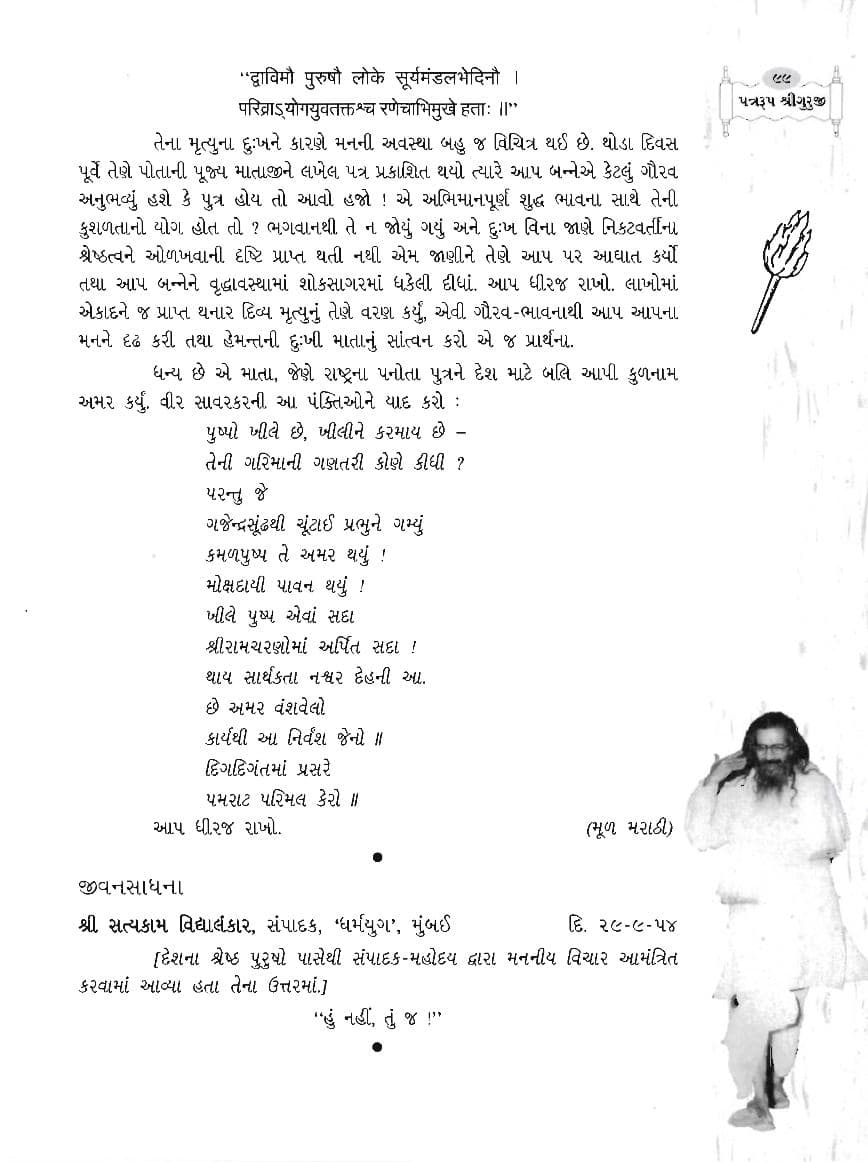 ૯૯
પત્રરૂપ શ્રીગુરુજી
“द्वाविमौ पुरुषौ लोके सूर्यमंडलभेदिनौ ।
परिव्राऽयोगयुवतक्तश्च रणेचाभिमुखे हताः ॥”
તેના મૃત્યુના દુઃખને કારણે મનની અવસ્થા બહુ જ વિચિત્ર થઈ છે. થોડા દિવસ
પૂર્વે તેણે પોતાની પૂજ્ય માતાજીને લખેલ પત્ર પ્રકાશિત થયો ત્યારે આપ બન્નેએ કેટલું ગૌરવ
અનુભવ્યું હશે કે પુત્ર હોય તો આવો હજો ! એ અભિમાનપૂર્ણ શુદ્ધ ભાવના સાથે તેની
કુશળતાનો યોગ હોત તો ? ભગવાનથી તે ન જોયું ગયું અને દુઃખ વિના જાણે નિકટવર્તીના
શ્રેષ્ઠત્વને ઓળખવાની દૃષ્ટિ પ્રાપ્ત થતી નથી એમ જાણીને તેણે આપ પર આઘાત કર્યો
તથા આપ બન્નેને વૃદ્ધાવસ્થામાં શોકસાગરમાં ધકેલી દીધાં. આપ ધીરજ રાખો. લાખોમાં
એકાદને જ પ્રાપ્ત થનાર દિવ્ય મૃત્યુનું તેણે વરણ કર્યું, એવી ગૌરવ-ભાવનાથી આપ આપના
મનને દૃઢ કરી તથા હેમન્તની દુઃખી માતાનું સાંત્વન કરો એ જ પ્રાર્થના.
ધન્ય છે એ માતા, જેણે રાષ્ટ્રના પનોતા પુત્રને દેશ માટે બલિ આપી કુળનામ
અમર કર્યું. વીર સાવરકરની આ પંક્તિઓને યાદ કરો :
પુષ્પો ખીલે છે, ખીલીને કરમાય છે –
તેની ગરિમાની ગણતરી કોણે કીધી ?
પરન્તુ જે
ગજેન્દ્રસૂંઢથી ચૂંટાઈ પ્રભુને ગમ્યું
કમળપુષ્પ તે અમર થયું !
મોક્ષદાયી પાવન થયું !
ખીલે પુષ્પ એવાં સદા
શ્રીરામચરણોમાં અર્પિત સદા !
થાય સાર્થકતા નશ્વર દેહની આ.
છે અમર વંશવેલો
કાર્યથી આ નિર્વંશ જેનો ॥
દિગદિગંતમાં પ્રસરે
પમરાટ પરિમલ કેરો ॥
આપ ધીરજ રાખો. (મૂળ મરાઠી)
●
જીવનસાધના
શ્રી સત્યકામ વિદ્યાલંકાર, સંપાદક, ‘ધર્મયુગ’, મુંબઈ દિ. ૨૯-૯-૫૪
[દેશના શ્રેષ્ઠ પુરુષો પાસેથી સંપાદક-મહોદય દ્વારા મનનીય વિચાર આમંત્રિત
કરવામાં આવ્યા હતા તેના ઉત્તરમાં.]
“હું નહીં, તું જ !”
●